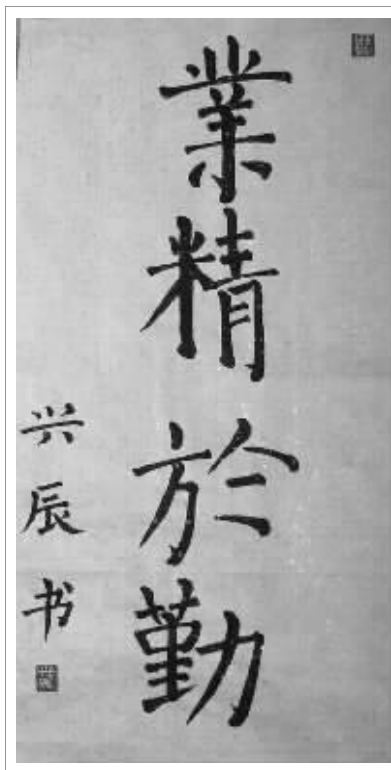 業精於勤
兴辰书